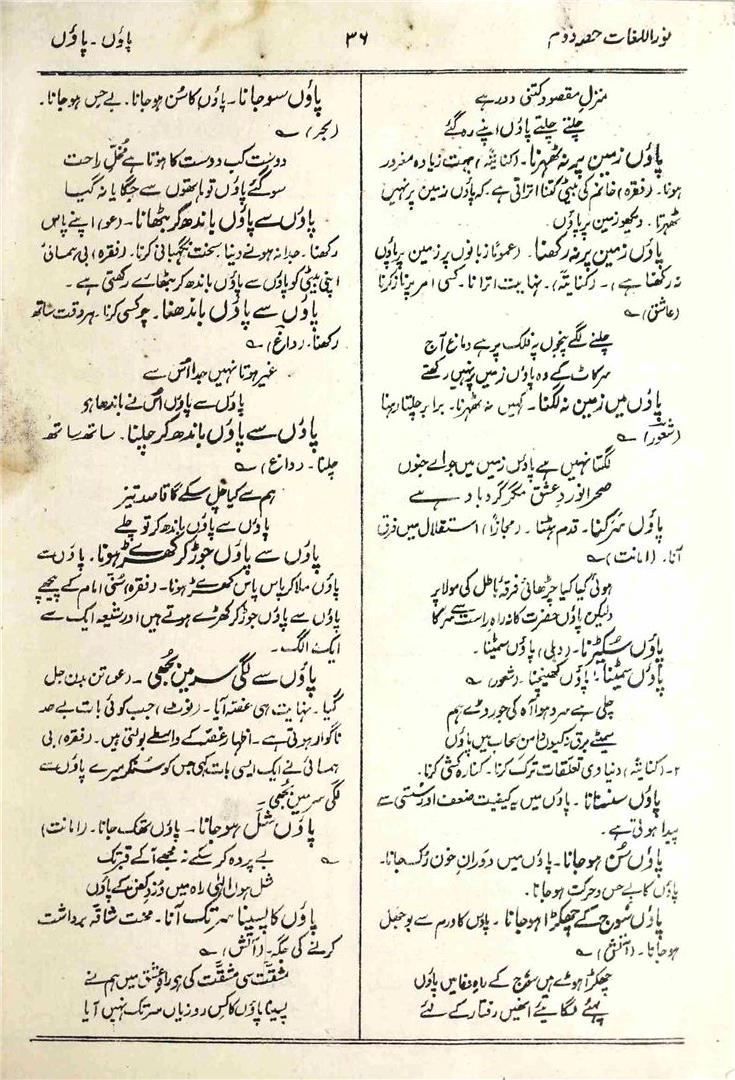 نوراللغات حصہ دوم
۳۶
پاؤں ۔ پاؤں
منزلِ مقصود کتنی دور ہے
چلتے چلتے پاؤں اپنے رہ گئے
پاؤں زمین پر نہ ٹھہرنا۔ (کنایتہً) بہت زیادہ مغرور
ہونا۔ (فقرہ) خانم کی بیٹی کتنا اتراتی ہے کہ پاؤں زمین پر نہیں
ٹھہرتا۔ دیکھو زمین پر پاؤں
پاؤں زمین پر نہ رکھنا۔ (عموماً زبانوں پر زمین پر پاؤں
نہ رکھنا ہے)۔ (کنایتہً)۔ نہایت اترانا۔ کسی امر پر ناز کرنا
(عاشق) ؎
چلنے لگے پنجوں پہ فلک پر ہے دماغ آج
سر کاٹ کے وہ پاؤں زمیں پر نہیں رکھتے
پاؤں میں زمین نہ لگنا۔ کہیں نہ ٹھہرنا۔ برابر چلتا رہنا
(شعور) ؎
لگتا نہیں ہے پاؤں زمیں میں جو اے جنوں
صحرا نوردِ عشق مگر گرد باد ہے
پاؤں سرکنا۔ قدم ہٹنا۔ (مجازاً) استقلال میں فرق
آنا۔ (امانت) ؎
ہوئی گیا کیا چڑھائی فرقۂ باطل کی مولا پر
ولیکن پاؤں حضرت کا نہ راہِ راست سے سرکا
پاؤں سکیڑنا۔ (دہلی) پاؤں سمیٹنا۔
پاؤں سمیٹنا۔ ۱۔ پاؤں کھینچنا۔ (شعور) ؎
چلی ہے سرد ہوا آہ کی جو روئے ہم
سمیٹے برق نہ کیوں دامنِ سحاب میں پاؤں
۲۔ (کنایتہً) دنیاوی تعلقات ترک کرنا۔ کنارہ کشی کرنا۔
پاؤں سنسنانا۔ پاؤں میں یہ کیفیت ضعف اور سستی سے
پیدا ہوتی ہے۔
پاؤں سُن ہو جانا۔ پاؤں میں دَورانِ خون رُک جانا۔
پاؤں کا بے حس و حرکت ہو جانا۔
پاؤں سُوج کے چھکڑا ہو جانا۔ پاؤں کا ورم سے بوجھل
ہو جانا۔ (آتش) ؎
چھکڑا ہوئے ہیں سُوج کے راہِ وفا میں پاؤں
پہئے لگائیے انھیں رفتار کے لئے
پاؤں سو جانا۔ پاؤں کا سُن ہو جانا۔ بے حس ہو جانا۔
(بحر) ؎
دوست کب دوست کا ہوتا ہے مُخلِّ راحت
سو گئے پاؤں تو ہاتھوں سے جگایا نہ گیا
پاؤں سے پاؤں باندھ کر بٹھانا۔ (عو) اپنے پاس
رکھنا۔ جدا نہ ہونے دینا۔ سخت نگہبانی کرنا۔ (فقرہ) بی ہمسائی
اپنی بیٹی کو پاؤں سے پاؤں باندھ کر بٹھائے رکھتی ہے۔
پاؤں سے پاؤں باندھنا۔ چوکسی کرنا۔ ہر وقت ساتھ
رکھنا۔ (داغ) ؎
غیر ہوتا نہیں جدا اُس سے
پاؤں سے پاؤں اُس نے باندھا ہو
پاؤں سے پاؤں باندھ کر چلنا۔ ساتھ ساتھ
چلنا۔ (داغ) ؎
ہم سے کیا چل سکے گا قاصد تیز
پاؤں سے پاؤں باندھ کر تو چلے
پاؤں سے پاؤں جوڑ کر کھڑے ہونا۔ پاؤں سے
پاؤں ملا کر پاس پاس کھڑے ہونا۔ (فقرہ) سُنّی امام کے پیچھے
پاؤں سے پاؤں جوڑ کر کھڑے ہوتے ہیں اور شیعہ ایک سے
ایک الگ۔
پاؤں سے لگی سر میں بُجھی۔ (عو) تن بدن جل
گیا۔ نہایت ہی غصّہ آیا۔ (نوٹ) جب کوئی بات بے حد
ناگوار ہوتی ہے۔ اظہارِ غصّہ کے واسطے بولتی ہیں۔ (فقرہ) بی
ہمسائی نے ایک ایسی بات کہی جس کو سُنکر میرے پاؤں سے
لگی سر میں بُجھی۔
پاؤں شل ہو جانا۔ پاؤں تھک جانا۔ (امانت)
؎ بے پردہ کر سکے نہ مجھے آ کے قبر تک
شل ہوں الٰہی راہ میں دُزدِ کفن کے پاؤں
پاؤں کا پسینا سر تک آنا۔ محنت شاقہ برداشت
کرنے کی جگہ۔ (آتش) ؎
مشقّت سی مشقّت کی ہو راہِ عشق میں ہم نے
پسینا پاؤں کا کس روز یاں سر تک نہیں آیا